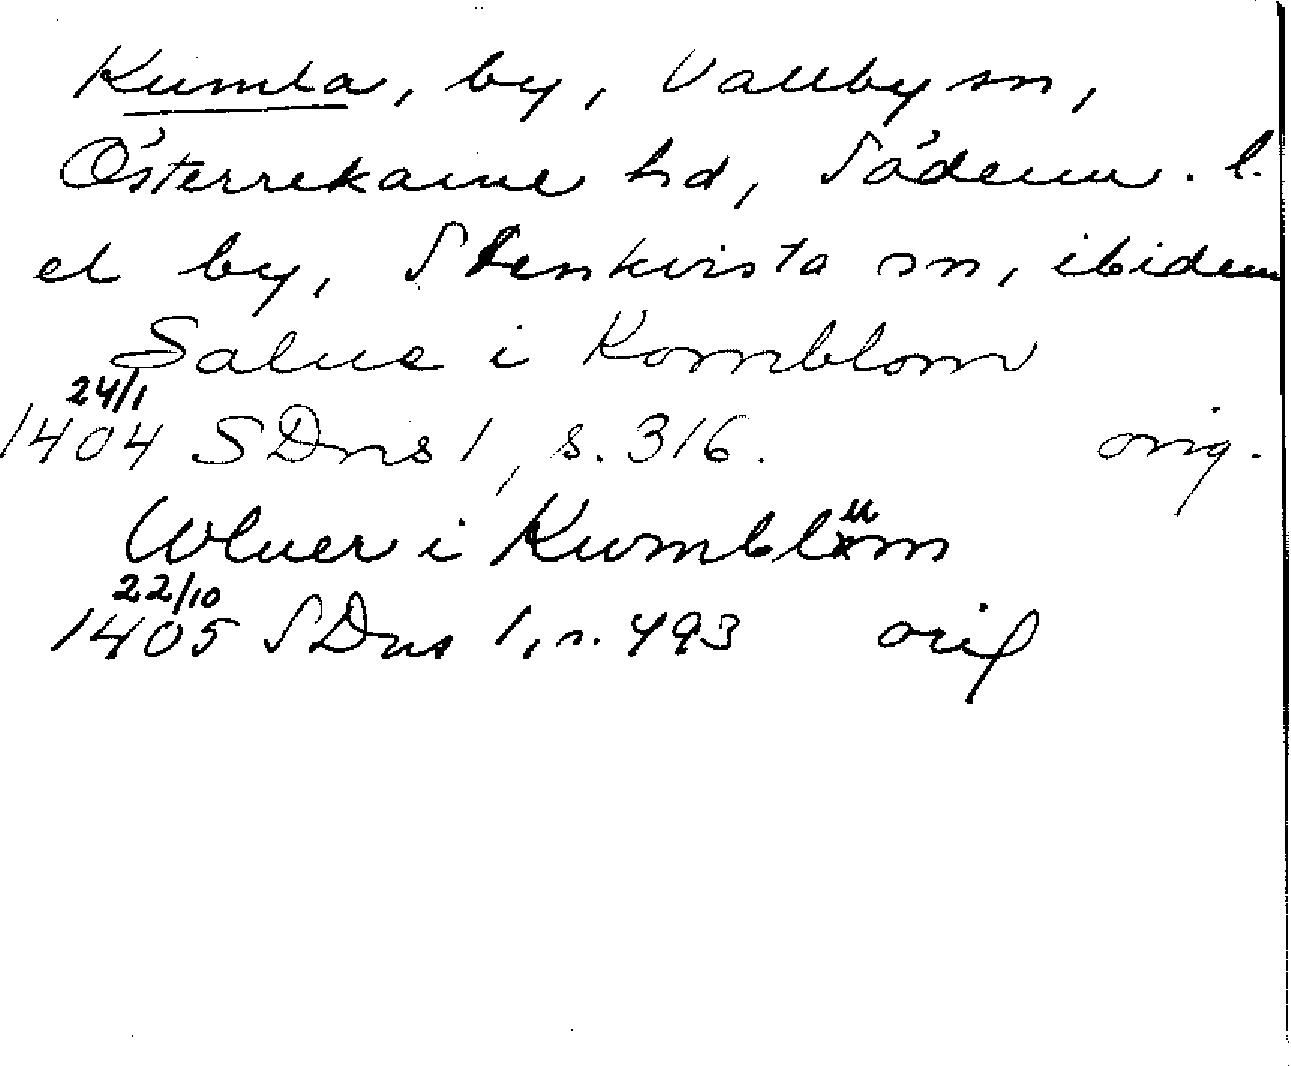 Kumla, by, Vallby sn,
Österrekarne hd, Söderm. l.
el by, Stenkvista sn, ibidem
Salue i Komblom
24/1
1404 SDns 1, s. 316. orig.
Wluer i Kumblum
22/10
1405 SDns 1, s. 493 orig